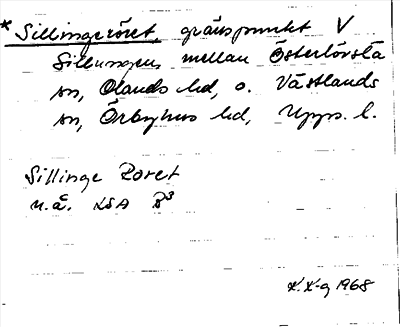 * Sillingeröret, gränspunkt V
Sillingens mellan Österlövsta
sn, Olands hd, o. Västlands
sn, Örbyhus hd, Upps. l.
Sillinge Roret
u.å. LSA B3
1968